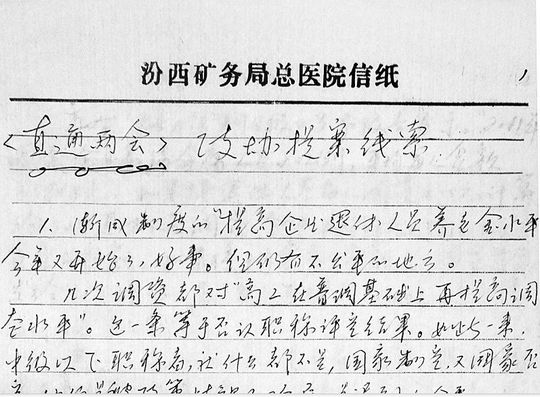 汾西矿务局总医院信纸
<直通两会> 政协提案线索
1. 渐成制度的"提高企业退休人员养老金水平
今年又再始了,好事。但仍有不公平的地方。
几次调资都对"高工在普调基础上再提高调
整水平"。这一条等于否认职称评定结果。如此一来,
中级以下职称者,就什么都不是,国家制定,又国家否